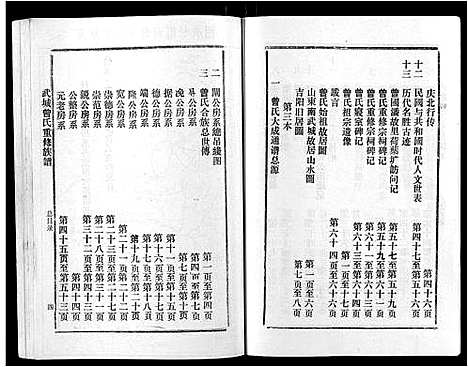 庆北行传 第四十六页
十二 民國与共和國时代人文世表
十三 历代名胜古迹
曾國藩故里荷葉圹訪问记 第五十七至第五十九页
曾氏重修宗祠碑记 第五十九至第六十页
曾氏襄室碑记
曾氏祖宗遗像 第六十一页至第六十三页
誠言 第六十四页
第三本
一 曾氏大成通谱总源
曾氏始祖故居圖 第一页至第六页
山東南武城故居山水圖
吉阳旧居圖 第七页至第八页
二 閩公房系總吊綫图 第一页至第四页
三 曾氏合族总世傳
易公房系 第四页
挽公房系 第五页至第七页
据公房系 第七页至第十页
德公房系 第十一页至第十五页
端公房系 第十六页至第十八页
隆公房系 第十九页至第二十页
宏公房系 第二十一页
崇范房系 第二十二页至第三十一页
鋭公房系 第三十二页至第四十三页
公整房系 第四十四页
元老房系 第四十五页至第五十三页
武城曾氏重修族譜 总目录 四